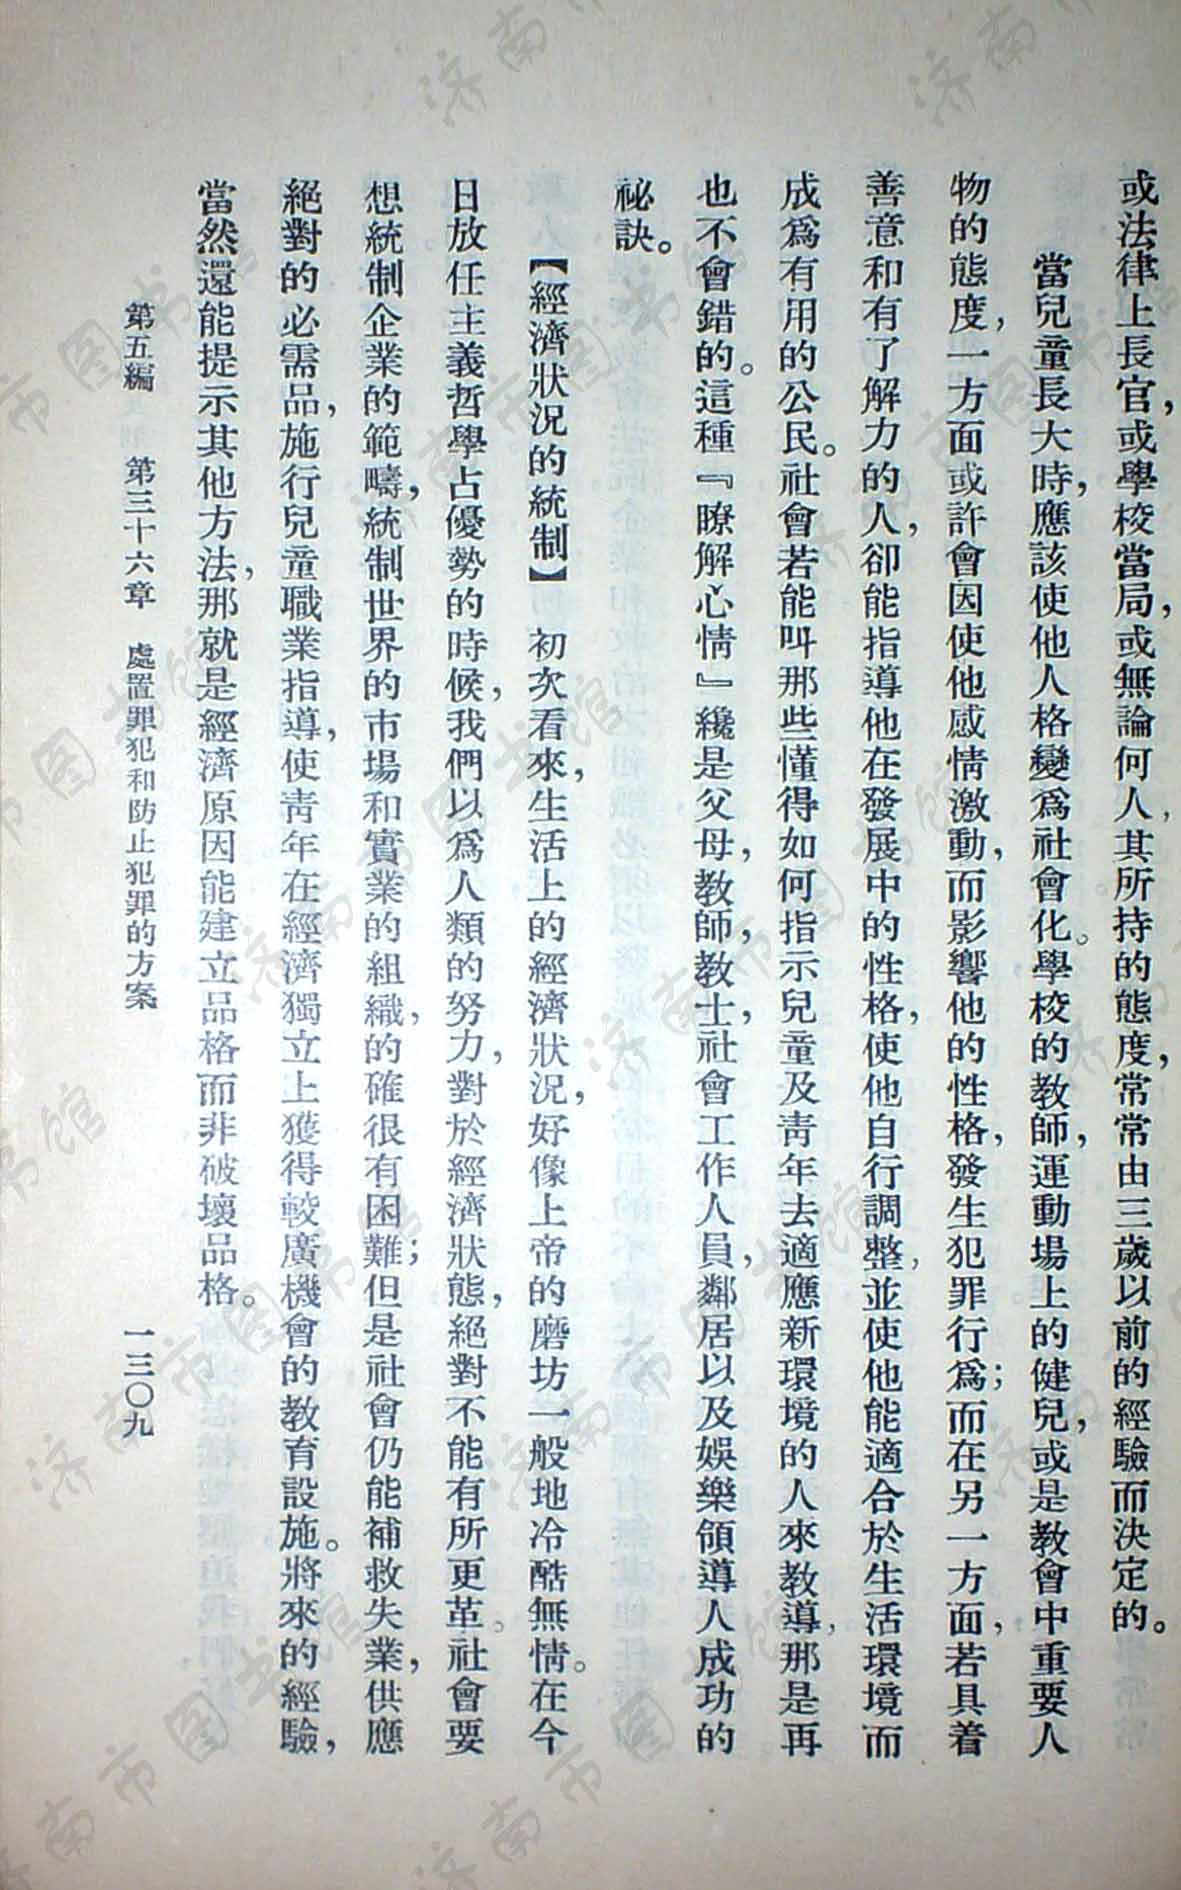 或法律上長官，或學校當局，或無論何人，其所持的態度，常常由三歲以前的經驗而決定的。
當兒童長大時，應該使他人格變爲社會化。學校的教師，運動場上的健兒，或是教會中重要人
物的態度，一方面或許會因使他感情激動，而影響他的性格，發生犯罪行爲；而在另一方面，若具着
善意和有了解力的人，卻能指導他在發展中的性格，使他自行調整，並使他能適合於生活環境而
成爲有用的公民。社會若能叫那些懂得如何指示兒童及靑年去適應新環境的人來教導，那是再
也不會錯的。這種『瞭解心情』纔是父母，教師，教士，社會工作人員，鄰居以及娛樂領導人成功的
祕訣。
【經濟狀况的統制】 初次看來，生活上的經濟狀況，好像上帝的磨坊一般地冷酷無情。在今
日放任主義哲學占優勢的時候，我們以爲人類的努力，對於經濟狀態，絕對不能有所更革。社會要
想統制企業的範疇，統制世界的市場和實業的組織，的確很有困難；但是社會仍能補救失業，供應
絕對的必需品，施行兒童職業指導，使靑年在經濟獨立上獲得較廣機會的教育設施。將來的經驗，
當然還能提示其他方法，那就是經濟原因能建立品格而非破壞品格。
第五編 第三十六章 處置罪犯和防止犯罪的方案 一三〇九
济南市图书馆